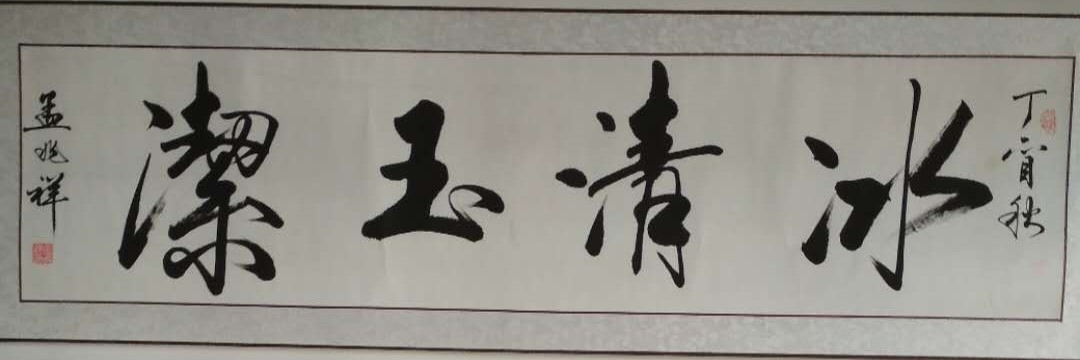 丁酉秋
冰清玉潔
孟兆祥